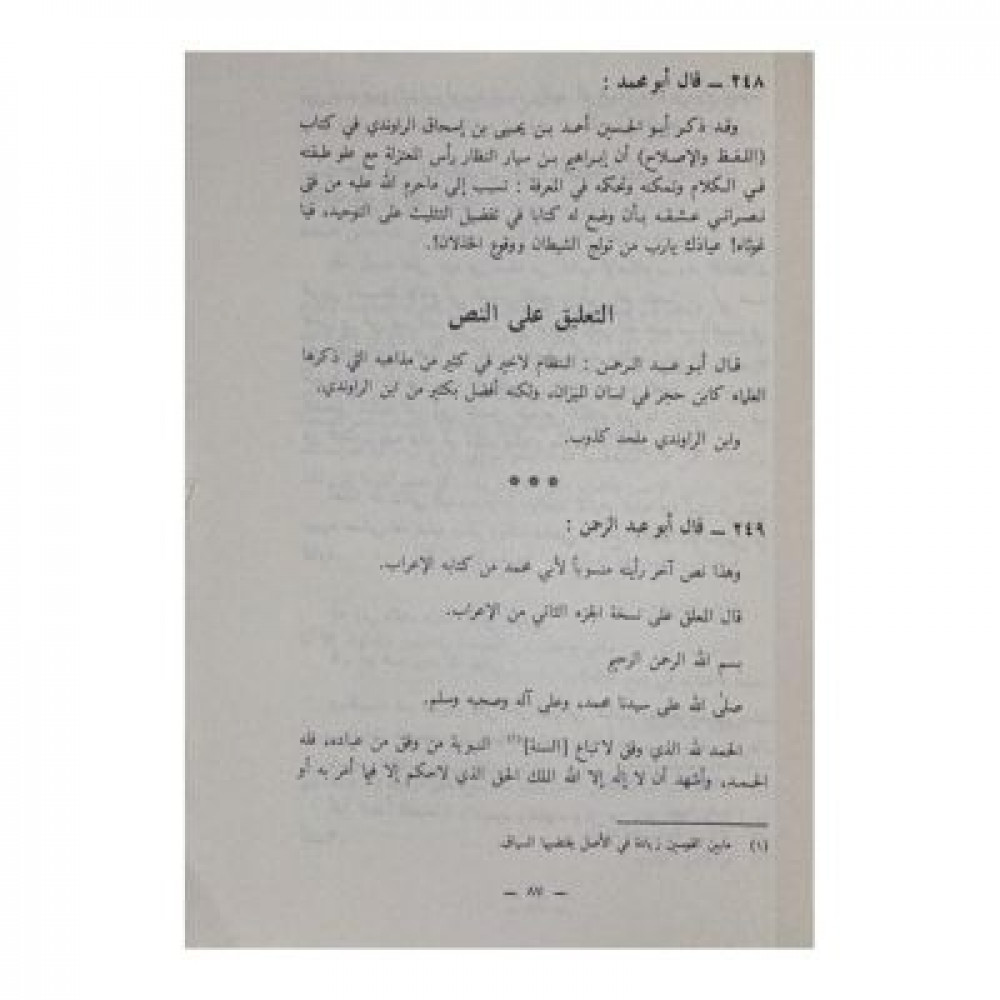 ٢٤٨ ــ قال أبو محمد :
وقد ذكر أبو الحسين أحمد بن يحيى بن إسحاق الراوندي في كتاب
(اللفظ والإصلاح) أن إبراهيم بن سيار النظار رأس المعتزلة مع علو طبقته
في الكلام وتمكنه وتحكمه في المعرفة : تسبب إلى ماحرم الله عليه من فتى
نصراني عشقه بأن وضع له كتابا في تفضيل التثليث على التوحيد، فيا
غوثاه! عياذك يارب من تولج الشيطان ووقوع الخذلان!.
التعليق على النص
قال أبو عبد الرحمن : النظام لاخير في كثير من مذاهبه التي ذكرها
العلماء كابن حجر في لسان الميزان، ولكنه أفضل بكثير من ابن الراوندي.
وابن الراوندي ملحد كذوب.
* * *
٢٤٩ ــ قال أبو عبد الرحمن :
وهذا نص آخر رأيته منسوباً لأبي محمد من كتابه الإعراب.
قال المعلق على نسخة الجزء الثاني من الإعراب.
بسم الله الرحمن الرحيم
صلى الله على سيدنا محمد، وعلى آله وصحبه وسلم.
الحمد لله الذي وفق لاتباع [السنة]⁽¹⁾ النبوية من وفق من عباده، فله
الحمد، وأشهد أن لا إله إلا الله الملك الحق الذي لاحكم إلا فيما أمر به أو
(١) مابين القوسين زيادة في الأصل يقتضيها السياق.
— ٨٧ —